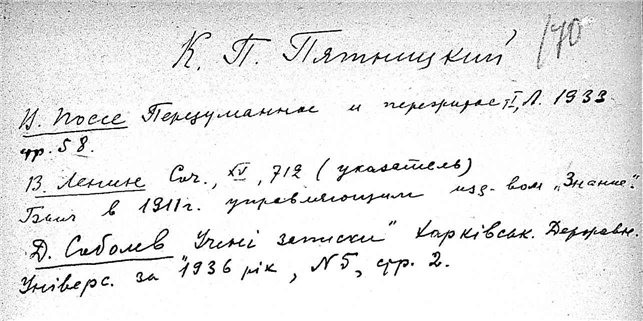 170
К. П. Пятницкий
В. Поссе Передуманное и пережитое, I, Л. 1933.
стр. 58.
В. Ленин Соч., XV, 712 (указатель)
Был в 1911 г. управляющим изд-вом „Знание".
Д. Соболев „Учені записки" Харківськ. Державн.
Універс. за 1936 рік, N5, стр. 2.